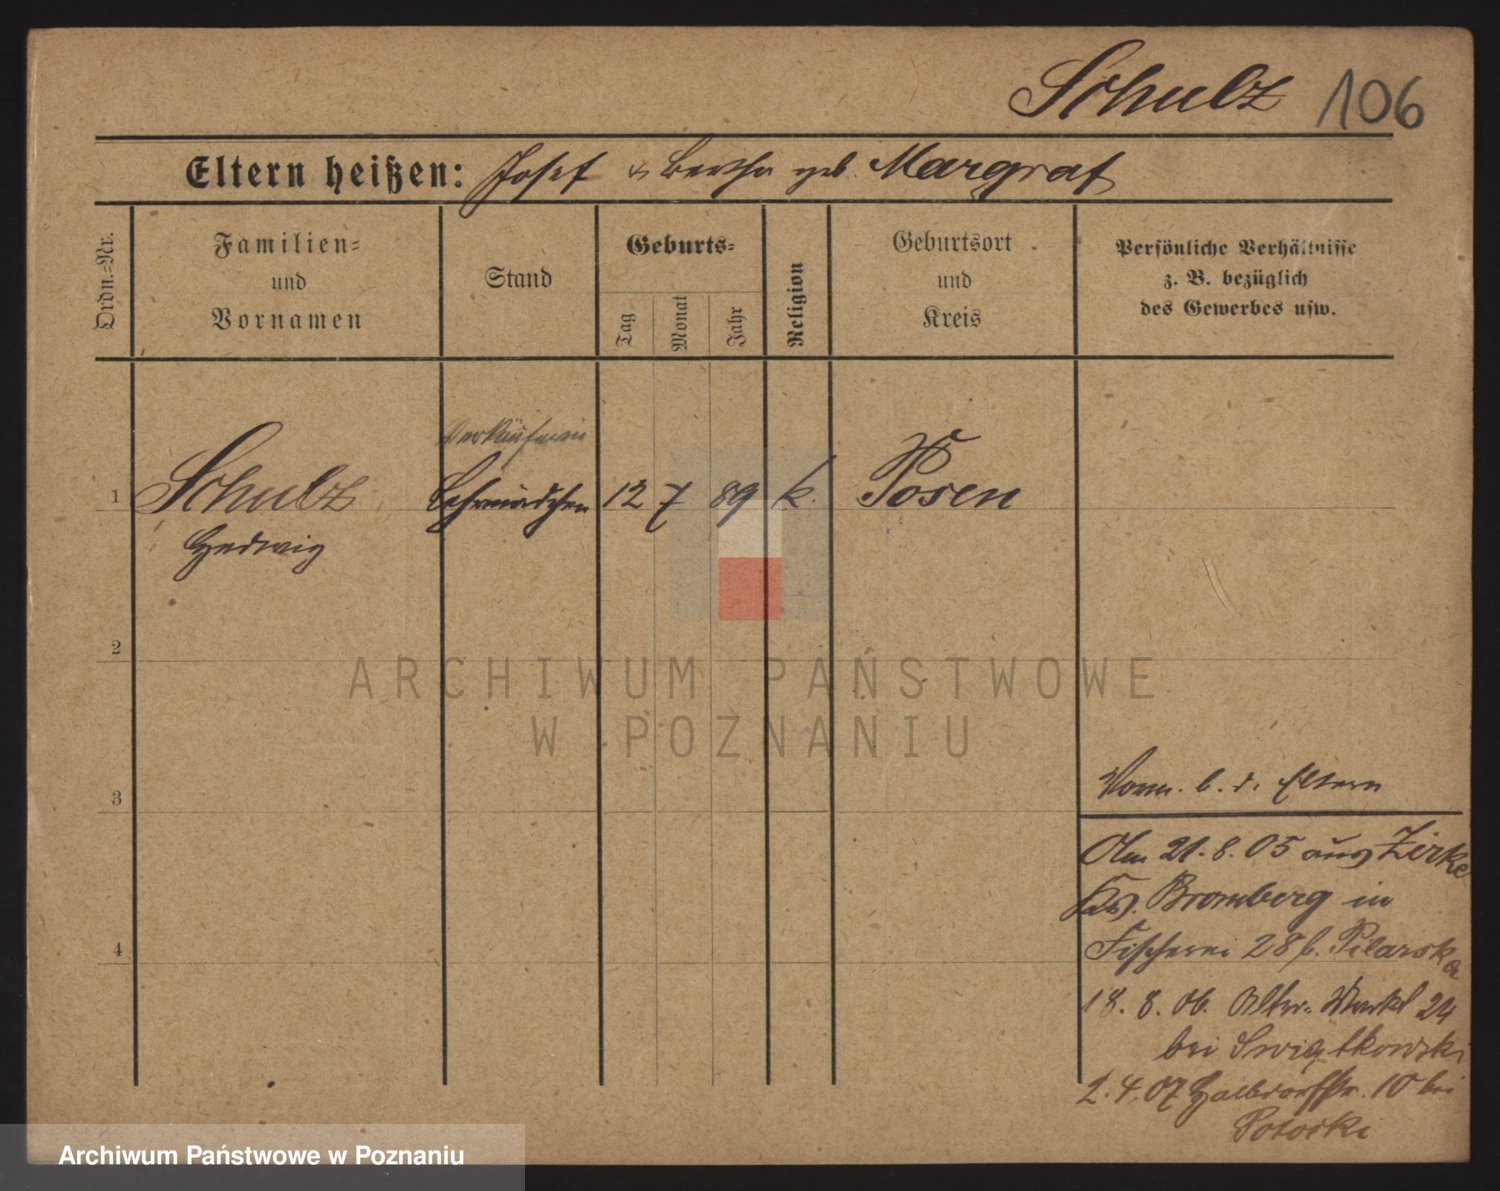 Schulz 106
Eltern heißen: Josef & Bertha geb. Margraf
Ordn.=Nr.
Familien=
und
Vornamen
Stand
Geburts=
Tag
Monat
Jahr
Religion
Geburtsort
und
Kreis
Persönliche Verhältnisse
z. B. bezüglich
des Gewerbes usw.
Verkäuferin
1 Schulz Lehrmädchen 12 7 89 k. Posen
Hedwig
2
ARCHIWUM PAŃSTWOWE
W POZNANIU
3
Vorm. b. d. Eltern
Am 21.8.05 aus Zirke
Krs. Bromberg in
4
Fischerei 28 b. Pilarska
18.8.06. Alter Markt 24
bei Swiątkowski
2.4.07 Halbdorfstr. 10 bei
Potocki
Archiwum Państwowe w Poznaniu